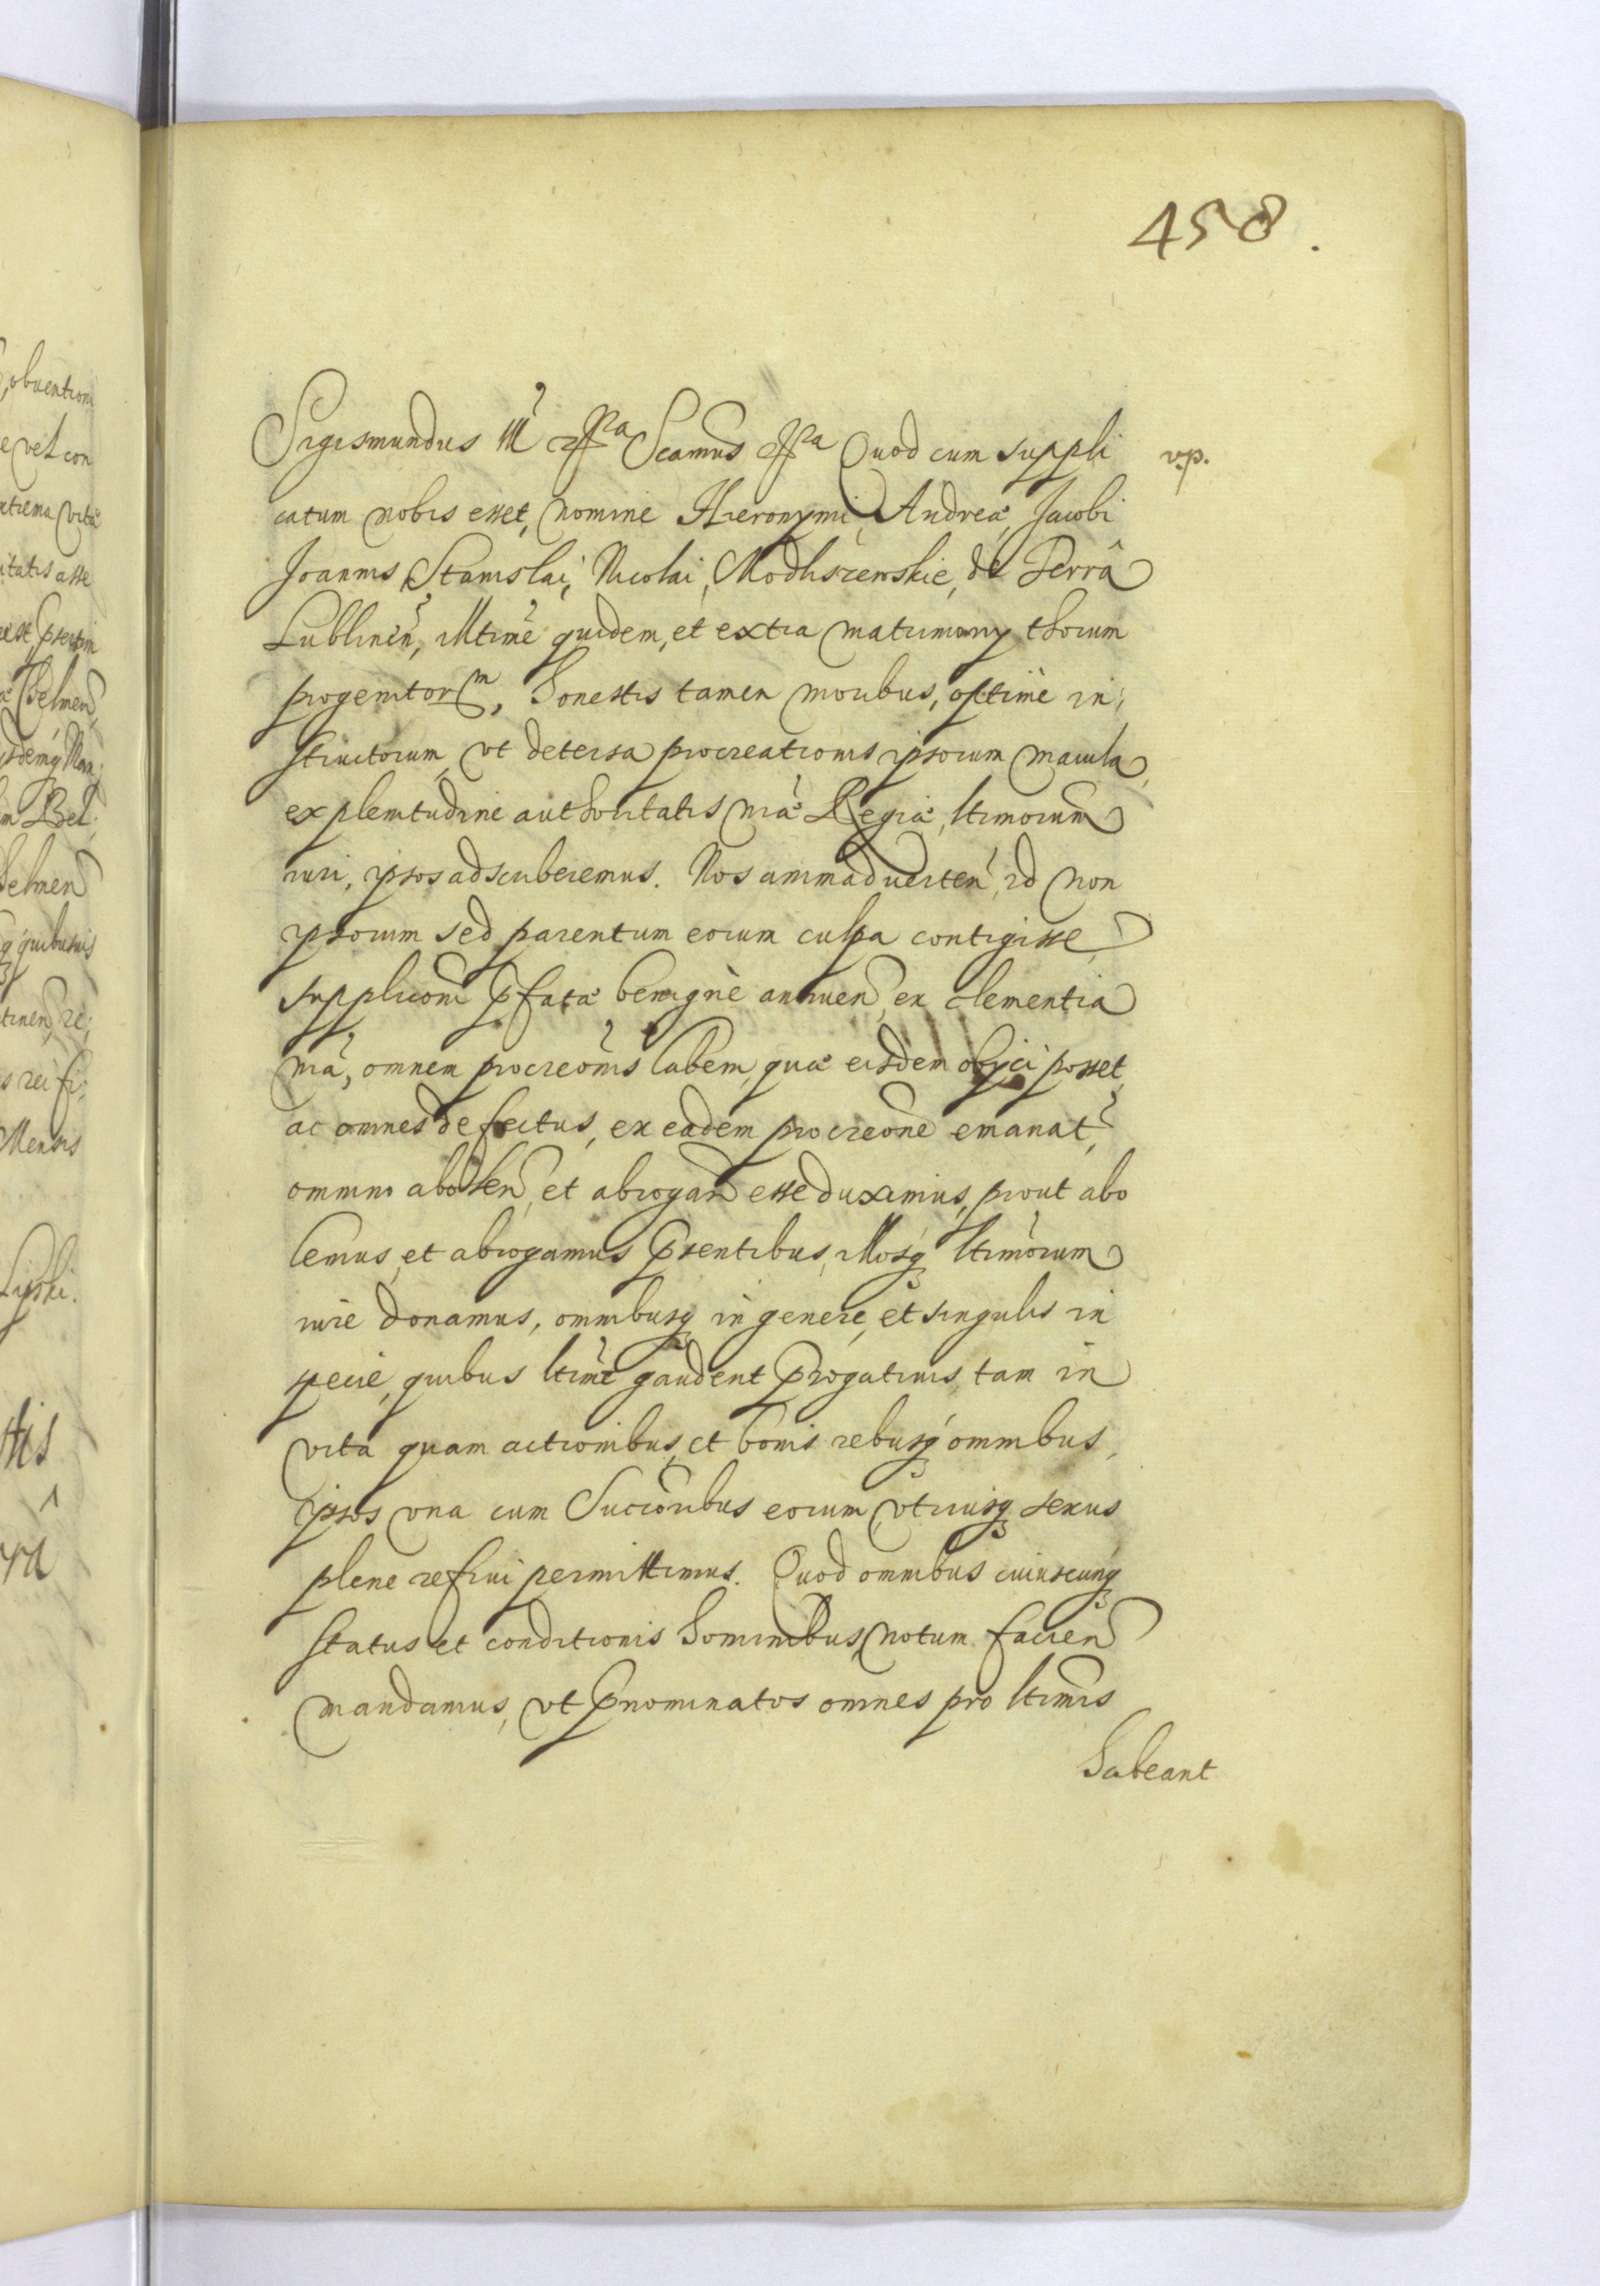 458.
Sigismundus III Scimus Quod cum suppli
vip.
catum nobis esset, nomine Hieronymi, Andreæ, Jacobi
Joannis, Stanislai, Nicolai, Modliszewskie, de Terrâ
Lublinen, illtime quidem, et extra matrimony thorum
progenitorm, honestis tamen moribus, optime in:
structorum, vt detersa procreationis ipsorum macula,
ex plenitudine authoritatis nræ Regiæ, ltimorum
iuri, ipsos adscriberemus. Nos animaduerten, id non
ipsorum sed parentum eorum culpa contigisse,
supplicõni pfatæ benignè annuen, ex clementia
nrã, omnem procreõnis labem, quæ eisdem obijci posset,
ac omnes defectus, ex eadem procreõne emanat,
omnino abolen, et abrogan esse duximus, prout abo
lemus, et abrogamus psentibus, illosq ltimorum
iure donamus, omnibusq in genere, et singulis in
specie, quibus ltimi gaudent progatiuis, tam in
vita quam actionibus, et bonis rebusq omnibus,
ipsos vna cum Succõribus eorum, vtriusq sexus
plene refrui permittimus. Quod omnibus cuiuscunq
status et conditionis hominibus, notum facien
mandamus, vt pnominatos omnes pro ltimis
habeant
obuention
e vel con
extrema vitæ
itatis asse
Chelmen
helmen
quibusuis
s rei fi:
Mensis
Lipski.